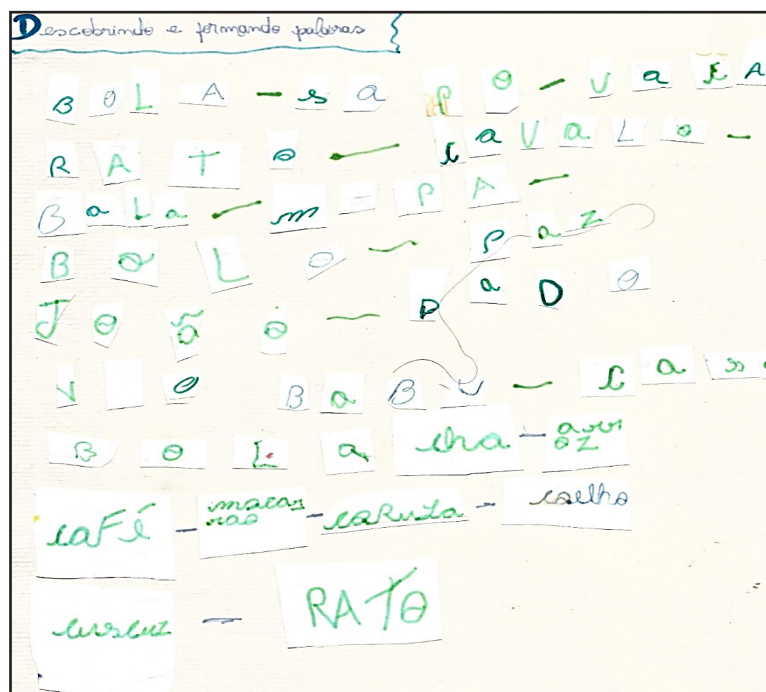 Descobrindo e formando palavras
BOLA - sa PO - VaCA
RATO - CaVaLo -
BaLa - m PA -
BOLO - Paz
JOÃO - PaDO
V O BaBU - Cas
BOLa cha - arroz
caFÉ - macarrao - caRuZa - coelho
cuscuz - RATO